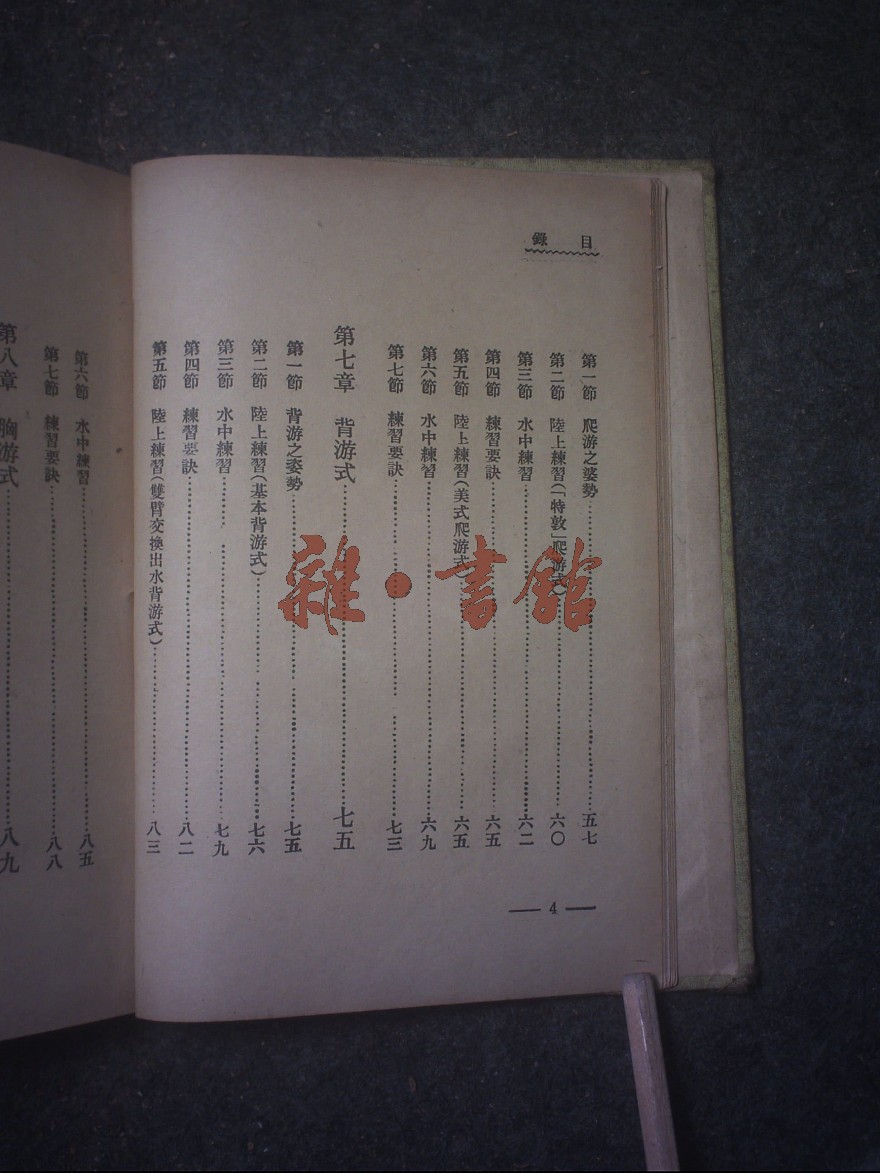 目錄
第一節 爬游之姿勢……五七
第二節 陸上練習(「特敦」爬游式)……六〇
第三節 水中練習……六二
第四節 練習要訣……六五
第五節 陸上練習(美式爬游式)……六五
第六節 水中練習……六九
第七節 練習要訣……七三
第七章 背游式……七五
第一節 背游之姿勢……七五
第二節 陸上練習(基本背游式)……七六
第三節 水中練習……七九
第四節 練習要訣……八二
第五節 陸上練習(雙臂交換出水背游式)……八三
— 4 —
第六節 水中練習……八五
第七節 練習要訣……八八
第八章 胸游式……八九
雜·書館